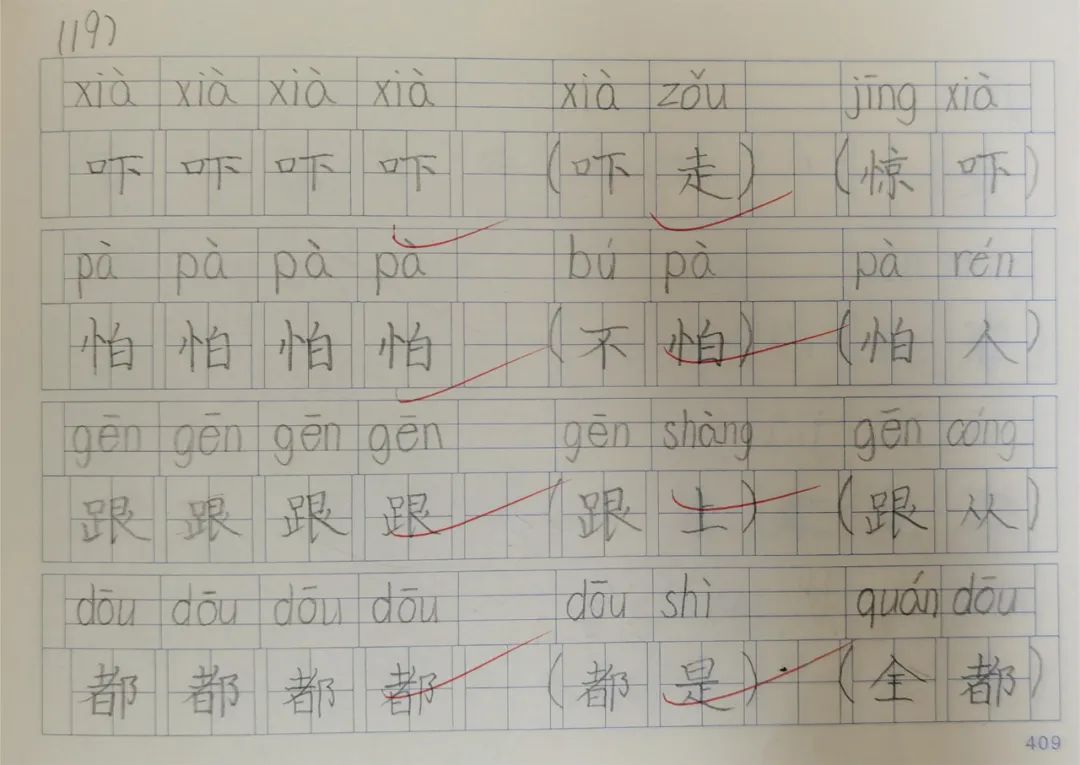 (19)
xià xià xià xià xià zǒu jīng xià
吓 吓 吓 吓 (吓 走) (惊 吓)
pà pà pà pà bú pà pà rén
怕 怕 怕 怕 (不 怕) (怕 人)
gēn gēn gēn gēn gēn shàng gēn cóng
跟 跟 跟 跟 (跟 上) (跟 从)
dōu dōu dōu dōu dōu shì quán dōu
都 都 都 都 (都 是) (全 都)
409